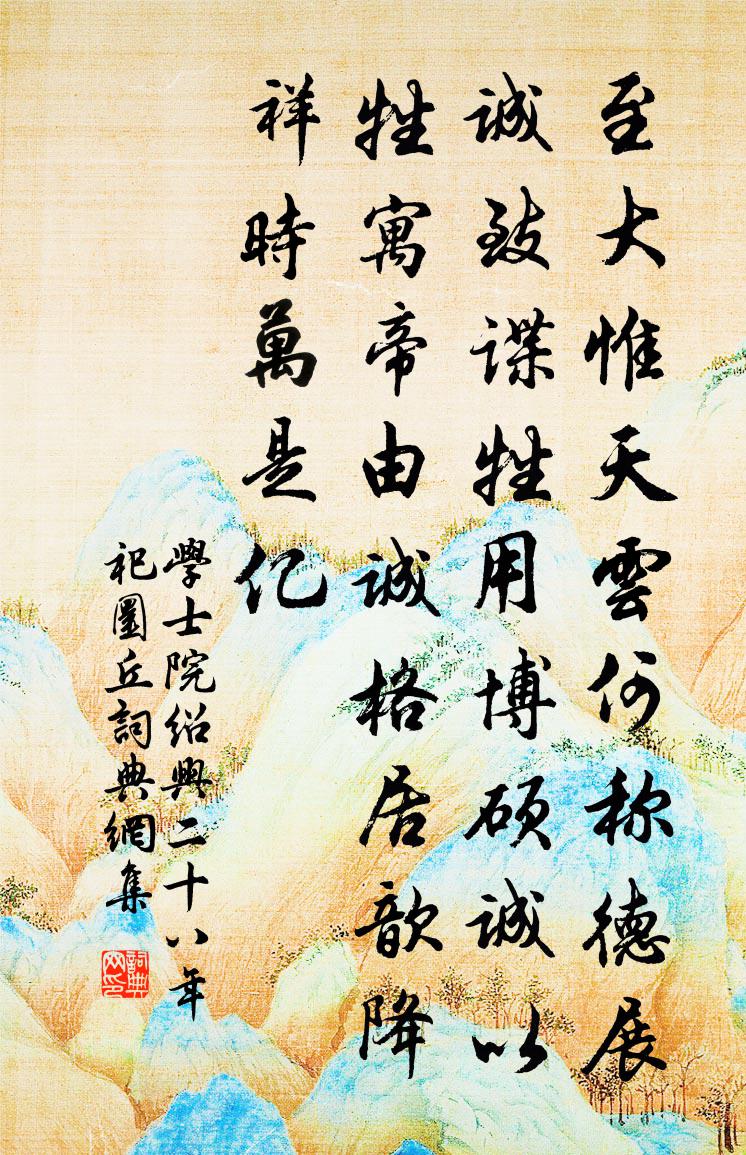 至大惟天雲何称德展
誠致諜牲用博硕誠以
牲寓帝由誠格居歆降
祥時萬是亿
學士院绍興二十八年
祀圜丘詞典網集
詞典
网印